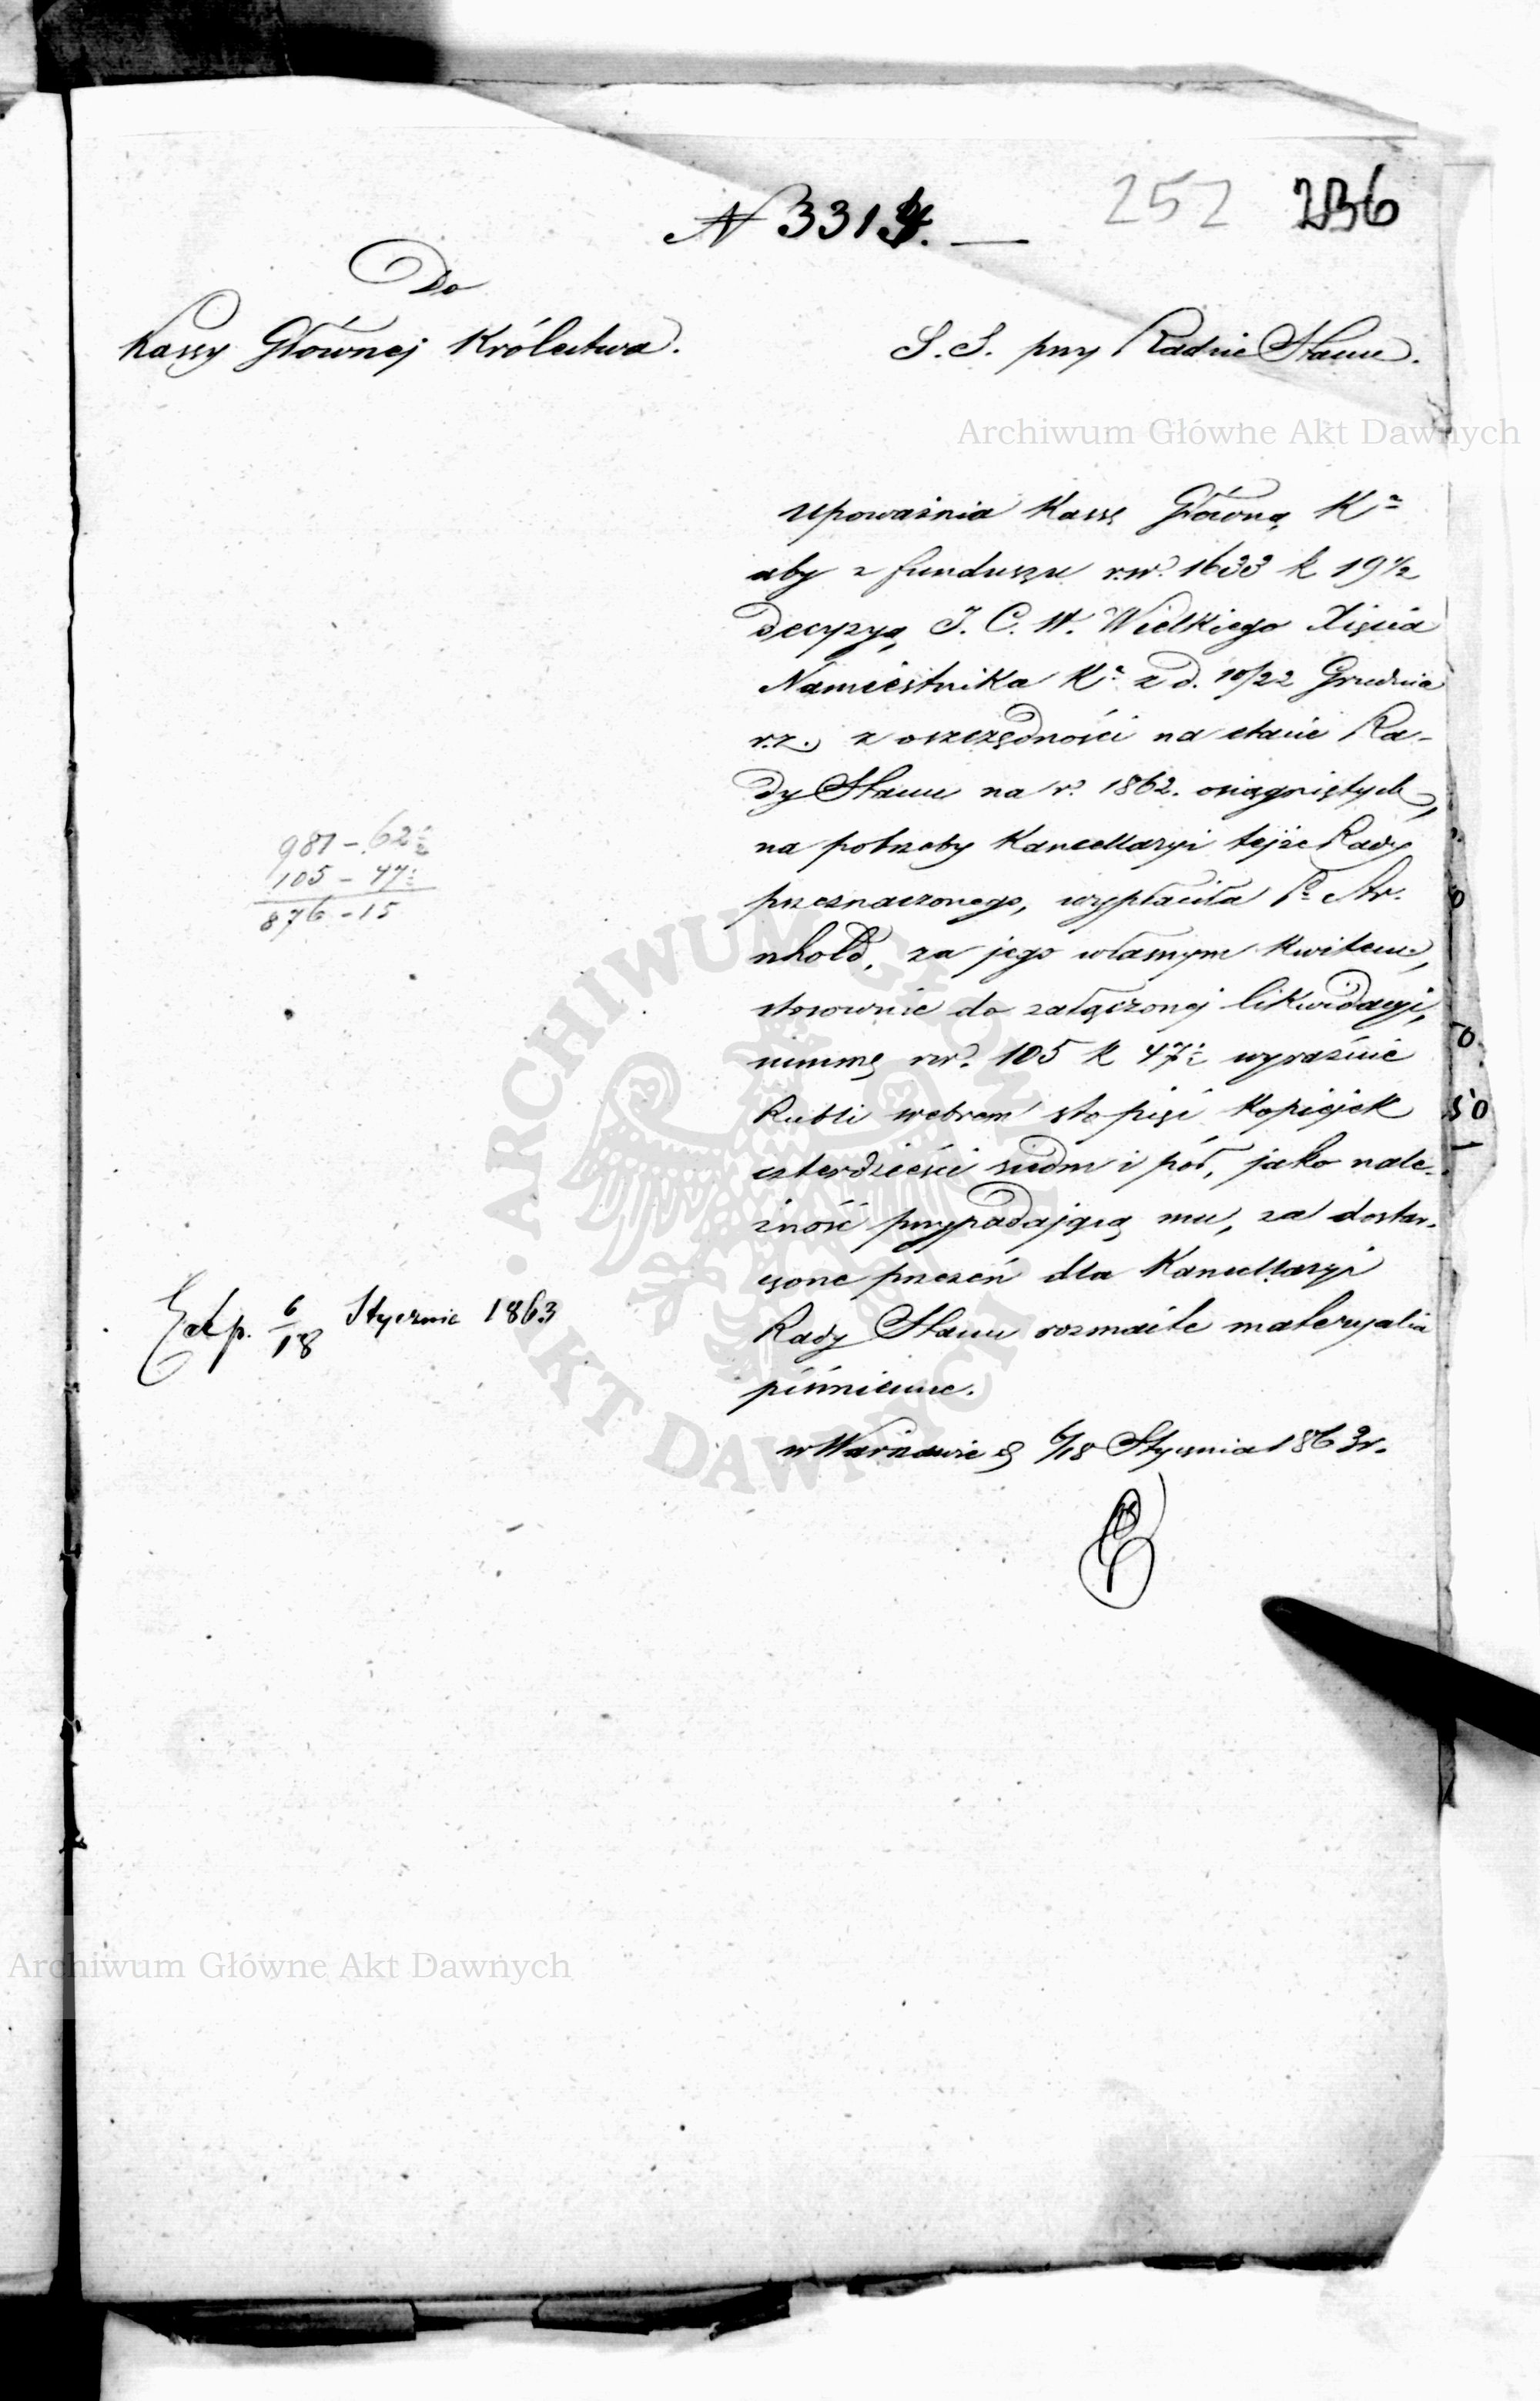 252 236
N 3314. —
Do
Kassy Głównej Królestwa.
S. S. przy Radzie Stanu.
Archiwum Główne Akt Dawnych
Upoważnia Kassę Główną Kª
aby z funduszu rsr. 1633 k 19½
decyzyą J. C. W. Wielkiego Xięcia
Namiestnika Kª z d. 10/22 Grudnia
r.z. z oszczędności na etacie Ra-
dy Stanu na r. 1862. osiągniętych,
na potrzeby Kancellaryi tejże Rady
przeznaczonego, wypłaciła Pª Ar-
nhold, za jego własnym kwitem,
stosownie do załączonej likwidacyi,
summę rsr. 105 k 47½ wyraźnie
Rubli srebrem sto pięć kopiejek
czterdzieści siedm i pół, jako nale-
żność przypadającą mu, za dostar-
czone przezeń dla Kancellaryi
Rady Stanu rozmaite materyalia
piśmienne.
w Warszawie d 6/18 Stycznia 1863 r.
981 - 62½
105 - 47½
876 - 15
Exp. 6/18 Stycznia 1863
ARCHIWUM GŁÓWNE AKT DAWNYCH
Archiwum Główne Akt Dawnych